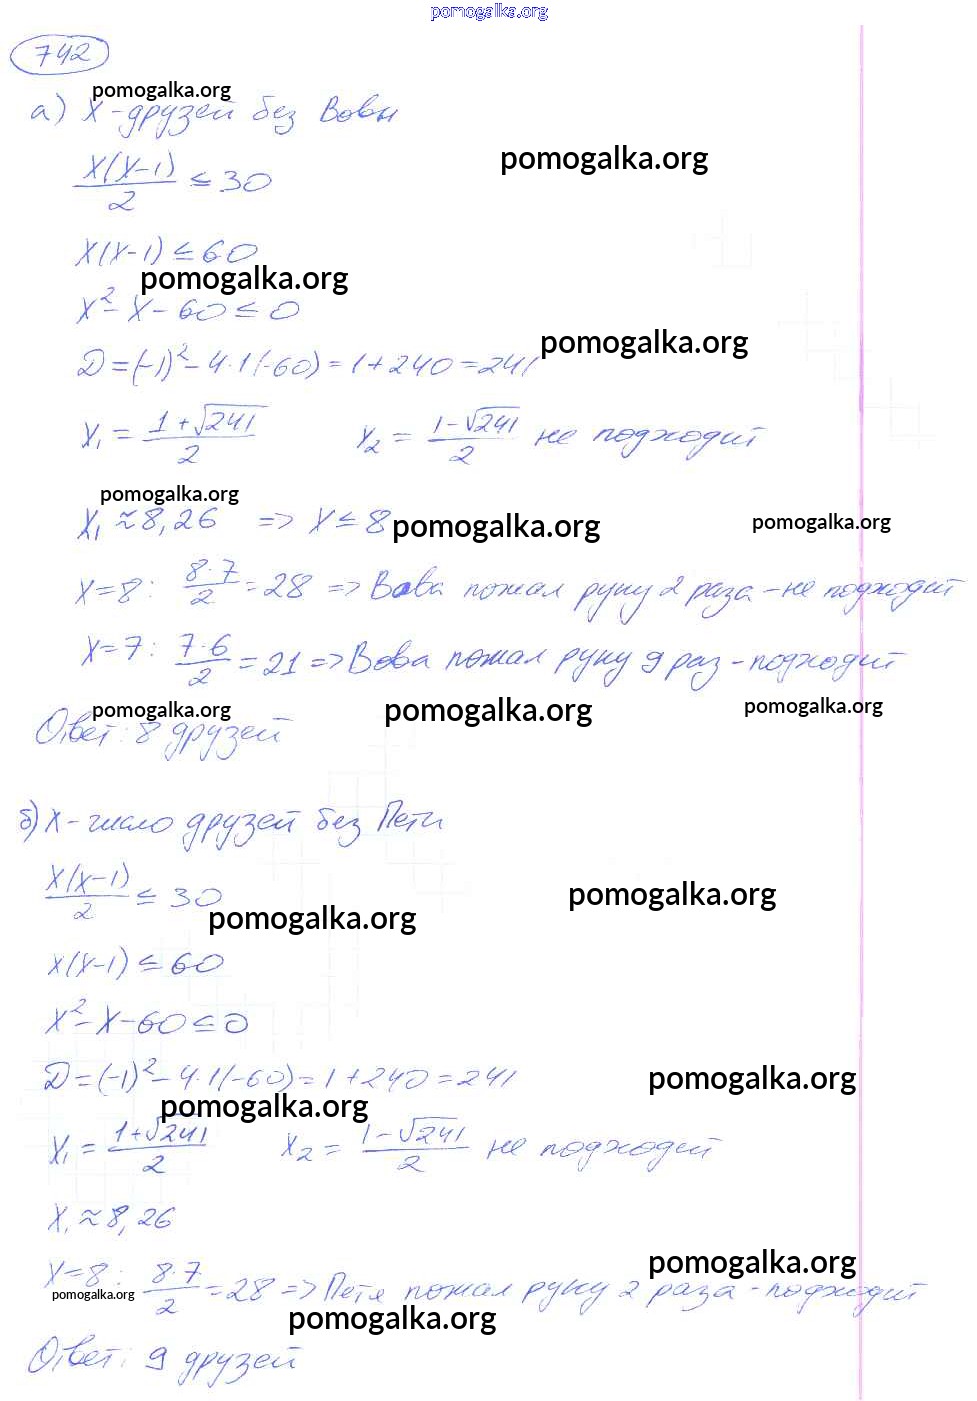 pomogalka.org
742
pomogalka.org
а) x - друзей без Вовы
pomogalka.org
x(x-1)/2 ≤ 30
x(x-1) ≤ 60
pomogalka.org
x² - x - 60 ≤ 0
pomogalka.org
D = (-1)² - 4·1(-60) = 1 + 240 = 241
x₁ = (1+√241)/2 x₂ = (1-√241)/2 не подходит
pomogalka.org
x₁ ≈ 8,26 => x ≤ 8 pomogalka.org pomogalka.org
x=8: 8·7/2 = 28 => Вова пожал руку 2 раза - не подходит
x=7: 7·6/2 = 21 => Вова пожал руку 9 раз - подходит
pomogalka.org pomogalka.org pomogalka.org
Ответ: 8 друзей
б) x - число друзей без Пети
x(x-1)/2 ≤ 30
pomogalka.org
pomogalka.org
x(x-1) ≤ 60
x² - x - 60 ≤ 0
D = (-1)² - 4·1(-60) = 1 + 240 = 241
pomogalka.org
pomogalka.org
x₁ = (1+√241)/2 x₂ = (1-√241)/2 не подходит
x₁ ≈ 8,26
pomogalka.org
x=8: 8·7/2 = 28 => Петя пожал руку 2 раза - подходит
pomogalka.org
pomogalka.org
Ответ: 9 друзей